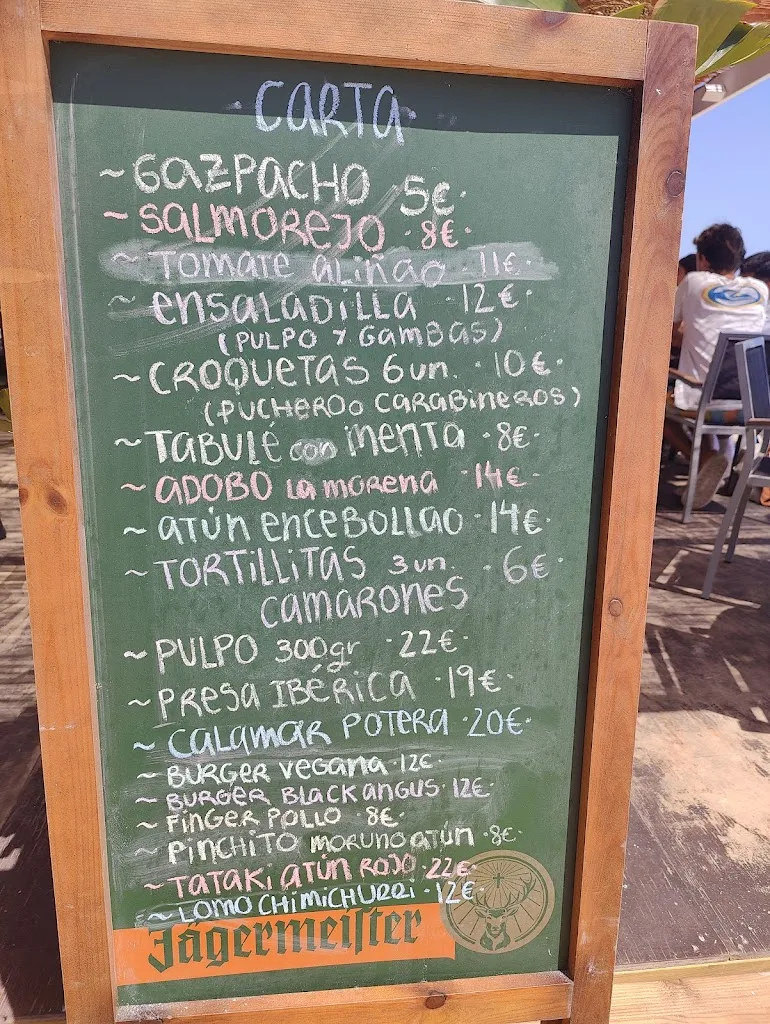 CARTA
~ GAZPACHO 5€.
~ SALMOREJO . 8€.
~ TOMATE ALIÑAO . 11€.
~ ENSALADILLA . 12€.
(PULPO Y GAMBAS)
~ CROQUETAS 6 un. . 10€.
(PUCHERO o CARABINEROS)
~ TABULÉ con MENTA . 8€.
~ ADOBO LA MORENA . 14€.
~ ATÚN ENCEBOLLAO . 14€.
~ TORTILLITAS 3 un. . 6€.
CAMARONES
~ PULPO 300gr . 22€.
~ PRESA IBÉRICA . 19€.
~ CALAMAR POTERA . 20€.
~ BURGER VEGANA . 12€.
~ BURGER BLACK ANGUS . 12€.
~ FINGER POLLO . 8€.
~ PINCHITO MORUNO ATÚN . 8€.
~ TATAKI ATÚN ROJO . 22€.
~ LOMO CHIMICHURRI . 12€.
Jägermeiſter